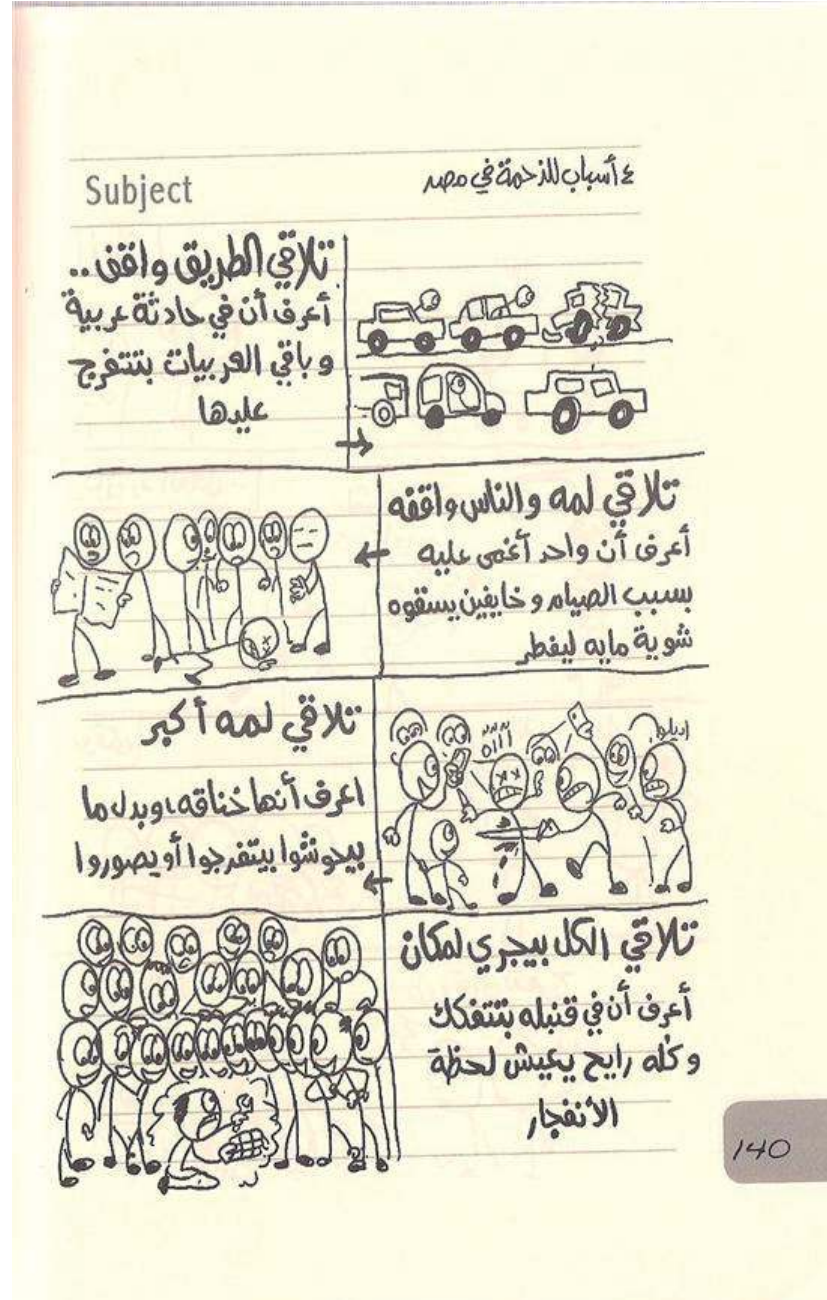 Subject
٤ أسباب للزحمة في مصر
تلاقي الطريق واقف..
أعرف أن في حادثة عربية
و باقي العربيات بتتفرج
عليها
تلاقي لمه والناس واقفه
أعرف أن واحد أغمى عليه
بسبب الصيام و خايفين يسقوه
شوية مايه ليفطر
تلاقي لمه أكبر
اعرف أنها خناقه، وبدل ما
بيحوشوا بيتفرجوا أو يصوروا
اااه
اديلوا
تلاقي الكل بيجري لمكان
أعرف أن في قنبله بتتفكك
و كله رايح يعيش لحظة
الأنفجار
140